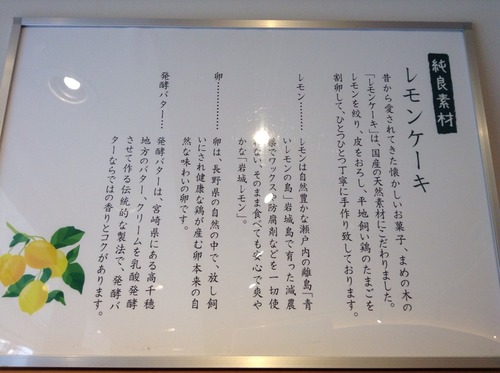 純良素材
レモンケーキ
昔から愛されてきた懐かしいお菓子、まめの木の
「レモンケーキ」は、国産の天然素材にこだわりました。
レモンを絞り、皮をおろし、平地飼い鶏のたまごを
割卵して、ひとつひとつ丁寧に手作り致しております。
レモン……… レモンは自然豊かな瀬戸内の離島「青
いレモンの島」岩城島で育った減農
薬でワックスや防腐剤などを一切使
わない、そのまま食べても安心で爽や
かな「岩城レモン」。
卵………… 卵は、長野県の自然の中で、放し飼
いにされ健康な鶏が産む卵本来の自
然な味わいの卵です。
発酵バター… 発酵バターは、宮崎県にある高千穂
地方のバター、クリームを乳酸発酵
させて作る伝統的な製法で、発酵バ
ターならではの香りとコクがあります。